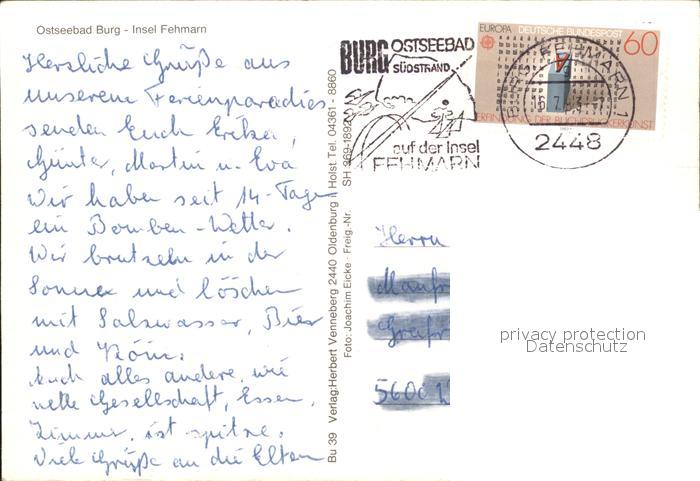 Ostseebad Burg - Insel Fehmarn
Herzliche Grüße aus
unserem Ferienparadies
senden Euch Erika,
Günter, Martin u. Eva
Wir haben seit 14 Tagen
ein Bomben-Wetter.
Wir brutzeln in der
Sonne und löschen
mit Salzwasser, Bier
und
Auch alles andere, wie
nette Gesellschaft, Essen,
Zimmer, ist spitze.
Viele Grüße an die Eltern
Bu 39 Verlag: Herbert Venneberg 2440 Oldenburg i. Holst. Tel. 04361 - 8860
Foto: Joachim Eicke · Freig.-Nr. SH 969-1892
BURG OSTSEEBAD
SÜDSTRAND
auf der Insel
FEHMARN
EUROPA DEUTSCHE BUNDESPOST 60
ERFINDUNG DER BUCHDRUCKERKUNST
FEHMARN 1
2448
Herrn
5600
privacy protection
Datenschutz